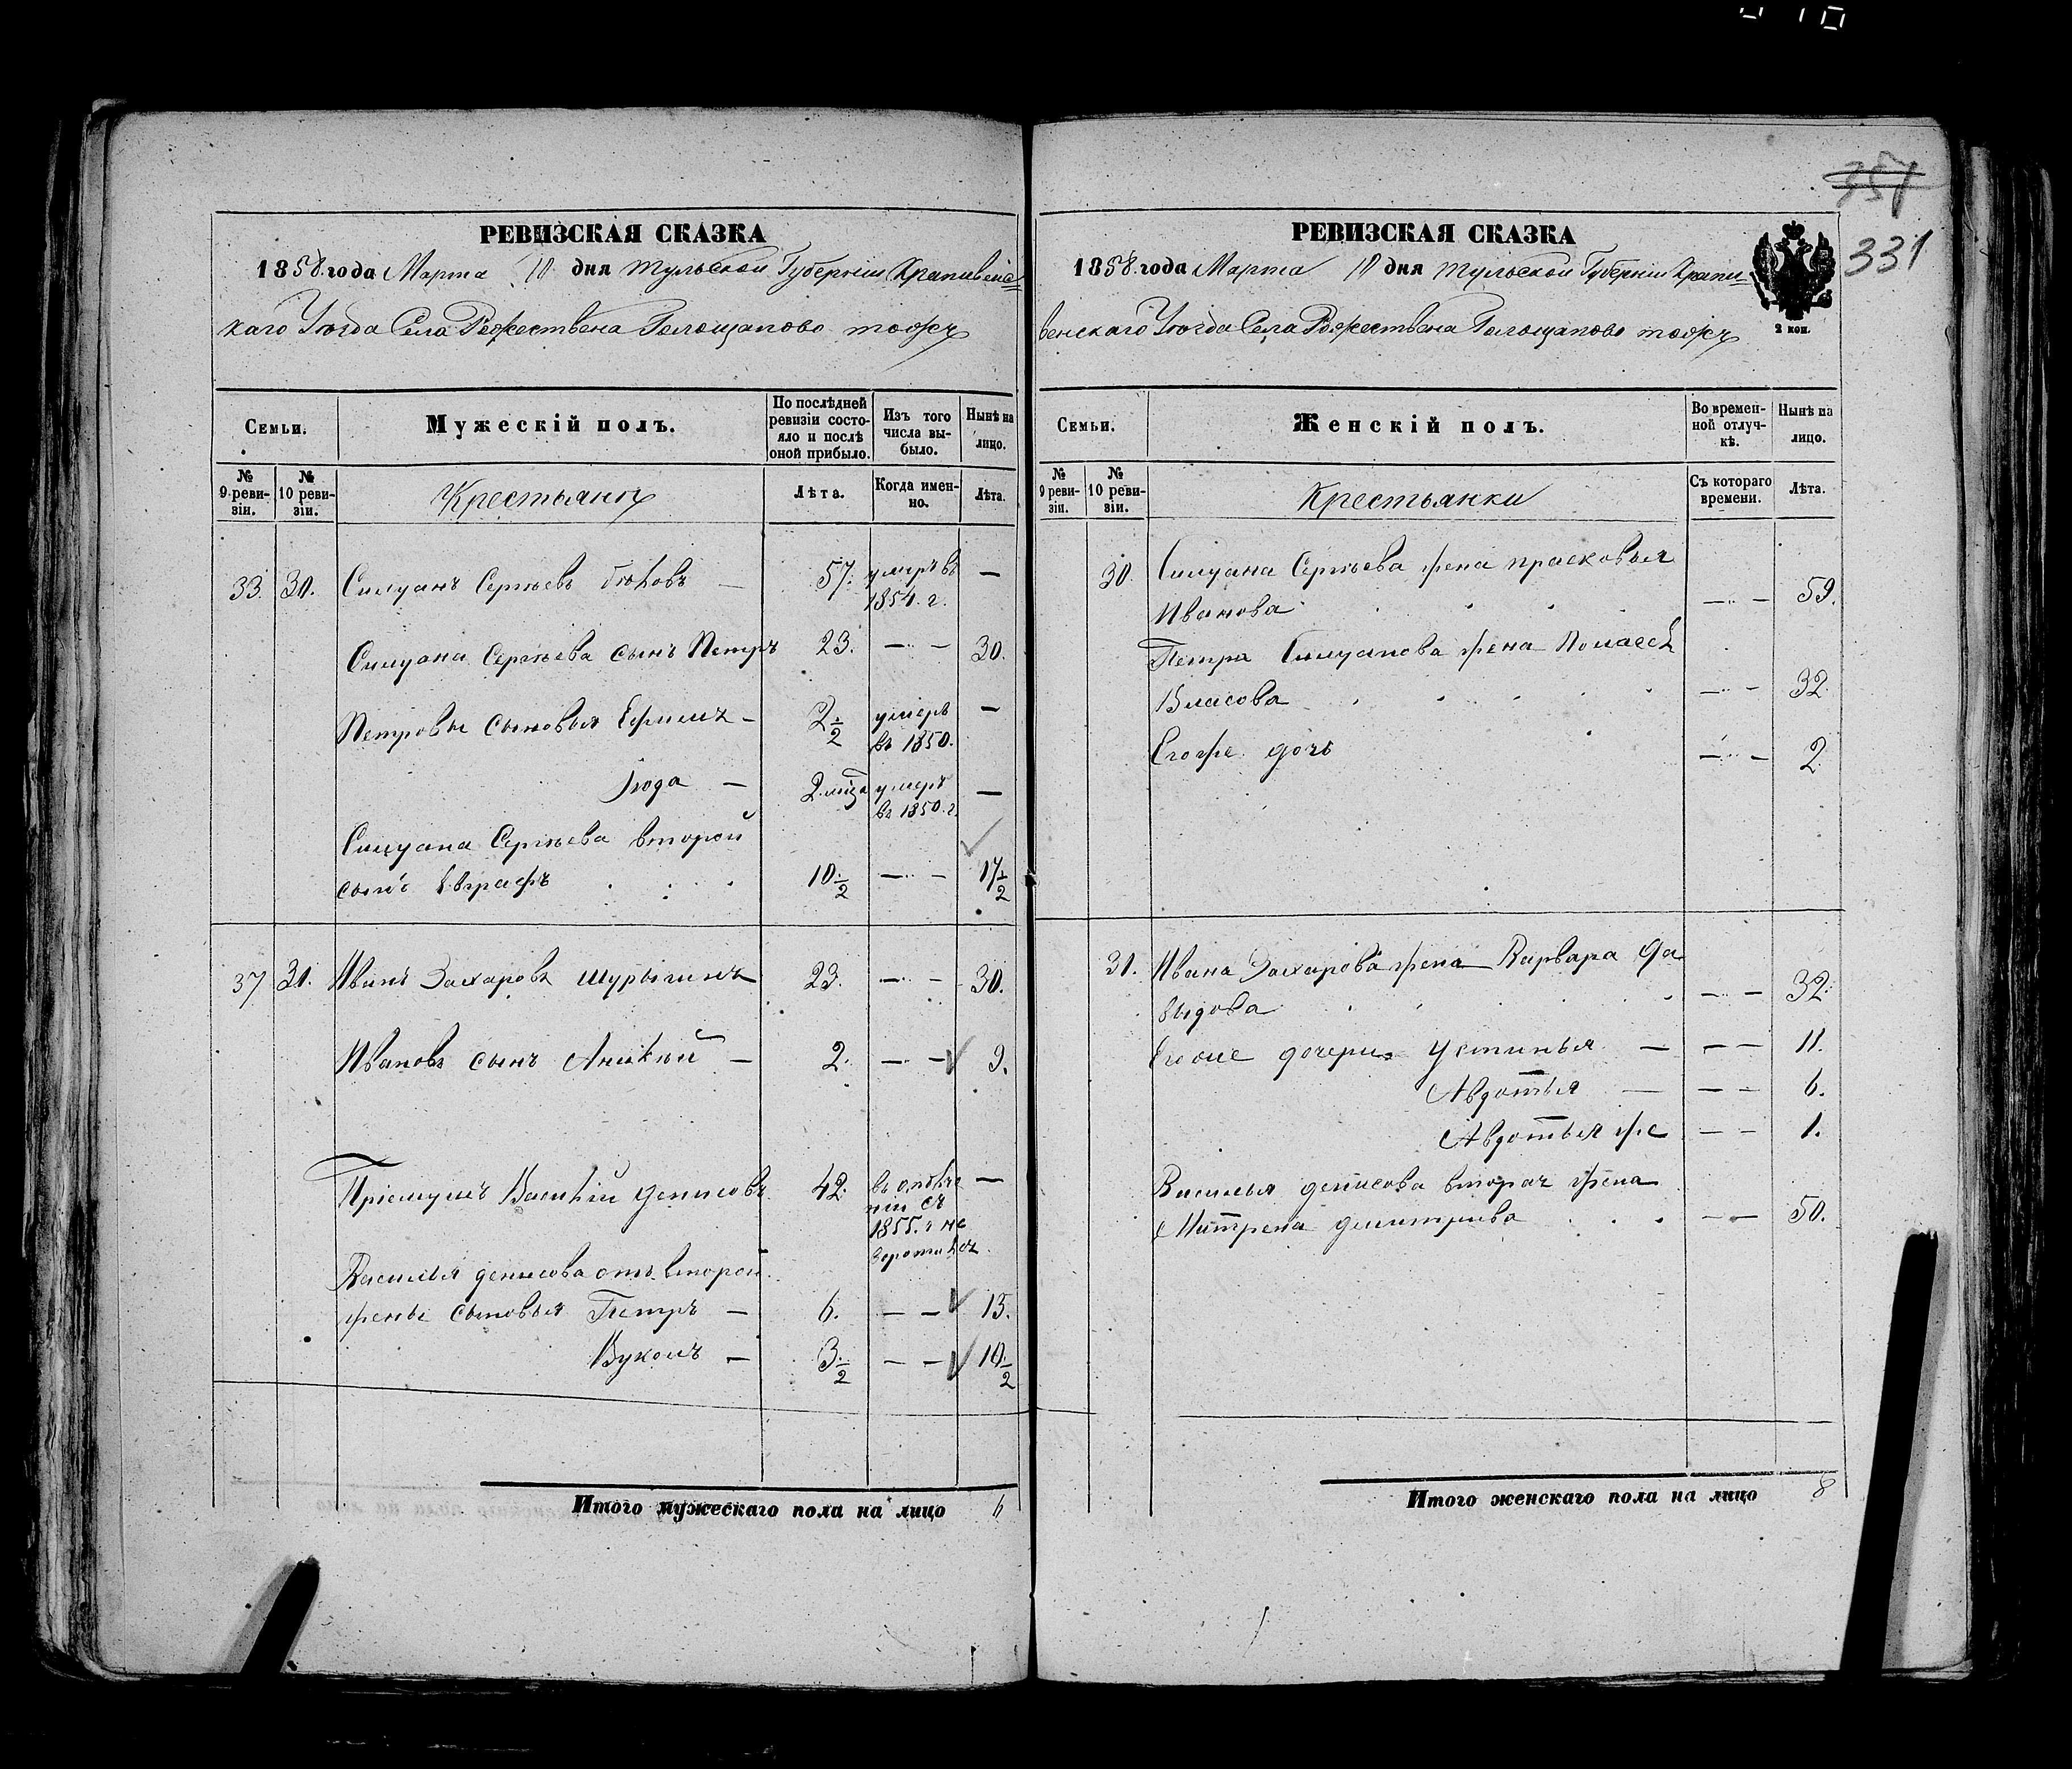 351
331
РЕВИЗСКАЯ СКАЗКА
1858 года Марта 10 дня Тульской Губерніи Крапивенс=
каго Уѣзда Села Рожествена Голощапово тожъ
Семьи.
Мужескій полъ.
По послѣдней ревизіи состояло и послѣ оной прибыло.
Изъ того числа выбыло.
Нынѣ на лицо.
№ 9 ревизіи.
№ 10 ревизіи.
Крестьяне
Лѣта.
Когда именно.
Лѣта.
33. 30. Силуанъ Сергѣевъ — 57. умеръ въ —
1854. г.
Силуана Сергѣева сынъ Петръ 23. — — 30.
Петровы сыновья Ефимъ — 2 1/2 умеръ —
въ 1850.
— 2 мѣца умеръ —
въ 1850. г.
Силуана Сергѣева второй
сынъ Евграфъ 10 1/2 — — 17 1/2
37 31. Иванъ Захаровъ Шурыгинъ 23. — — 30.
Ивановъ сынъ Аникѣй — 2. — — 9.
Пріемышъ Василій Денисовъ 42. —
1855. г не
Василья Денисова отъ второй
жены сыновья Петръ — 6. — — 13.
Вуколъ — 3 1/2 — — 10 1/2
Итого мужескаго пола на лицо 6
РЕВИЗСКАЯ СКАЗКА
1858 года Марта 10 дня Тульской Губерніи Крапи=
венскаго Уѣзда Села Рожествена Голощапово тожъ
2 коп.
Семьи.
Женскій полъ.
Во временной отлучкѣ.
Нынѣ на лицо.
№ 9 ревизіи.
№ 10 ревизіи.
Крестьянки
Съ котораго времени.
Лѣта.
30. Силуана Сергѣева жена Прасковья
Иванова — — 59.
Петра Силуанова жена
Власова — — 32.
Егоже дочь — — 2.
31. Ивана Захарова жена Варвара Да
выдова — — 32.
Егоже дочери Устинья — — — 11.
Авдотья — — — 6.
Авдотья же — — 1.
Василья Денисова вторая жена
Матрена Дмитриева — — 50.
Итого женскаго пола на лицо 8